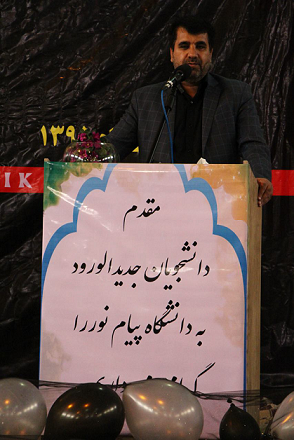 ۱۳۹
I K
مقدم
دانشجویان جدیدالورود
به دانشگاه پیام نور را
گرامی